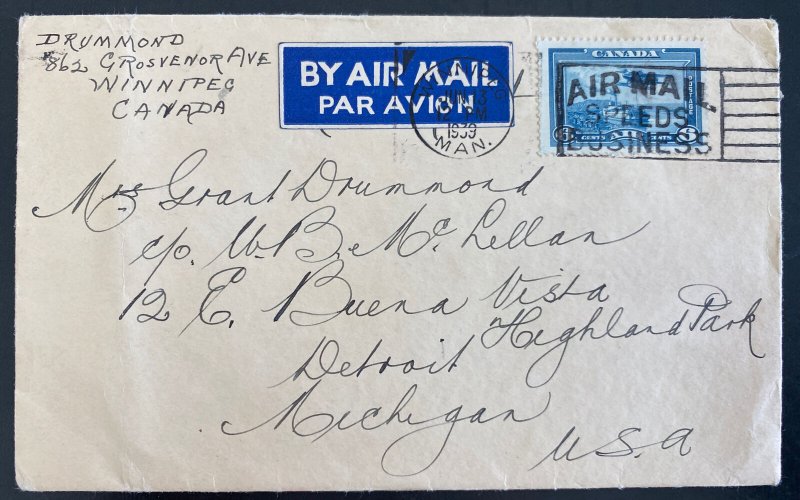 DRUMMOND
862 GROSVENOR AVE
WINNIPEG
CANADA
BY AIR MAIL
PAR AVION
JUN 3
PM
1939
MAN.
CANADA
POSTAGE
6 CENTS AIR CENTS 6
AIR MAIL
SPEEDS
BUSINESS
Mrs Grant Drummond
c/o W.B. McLellan
12 E. Buena Vista
Highland Park
Detroit
Michigan
U.S.A